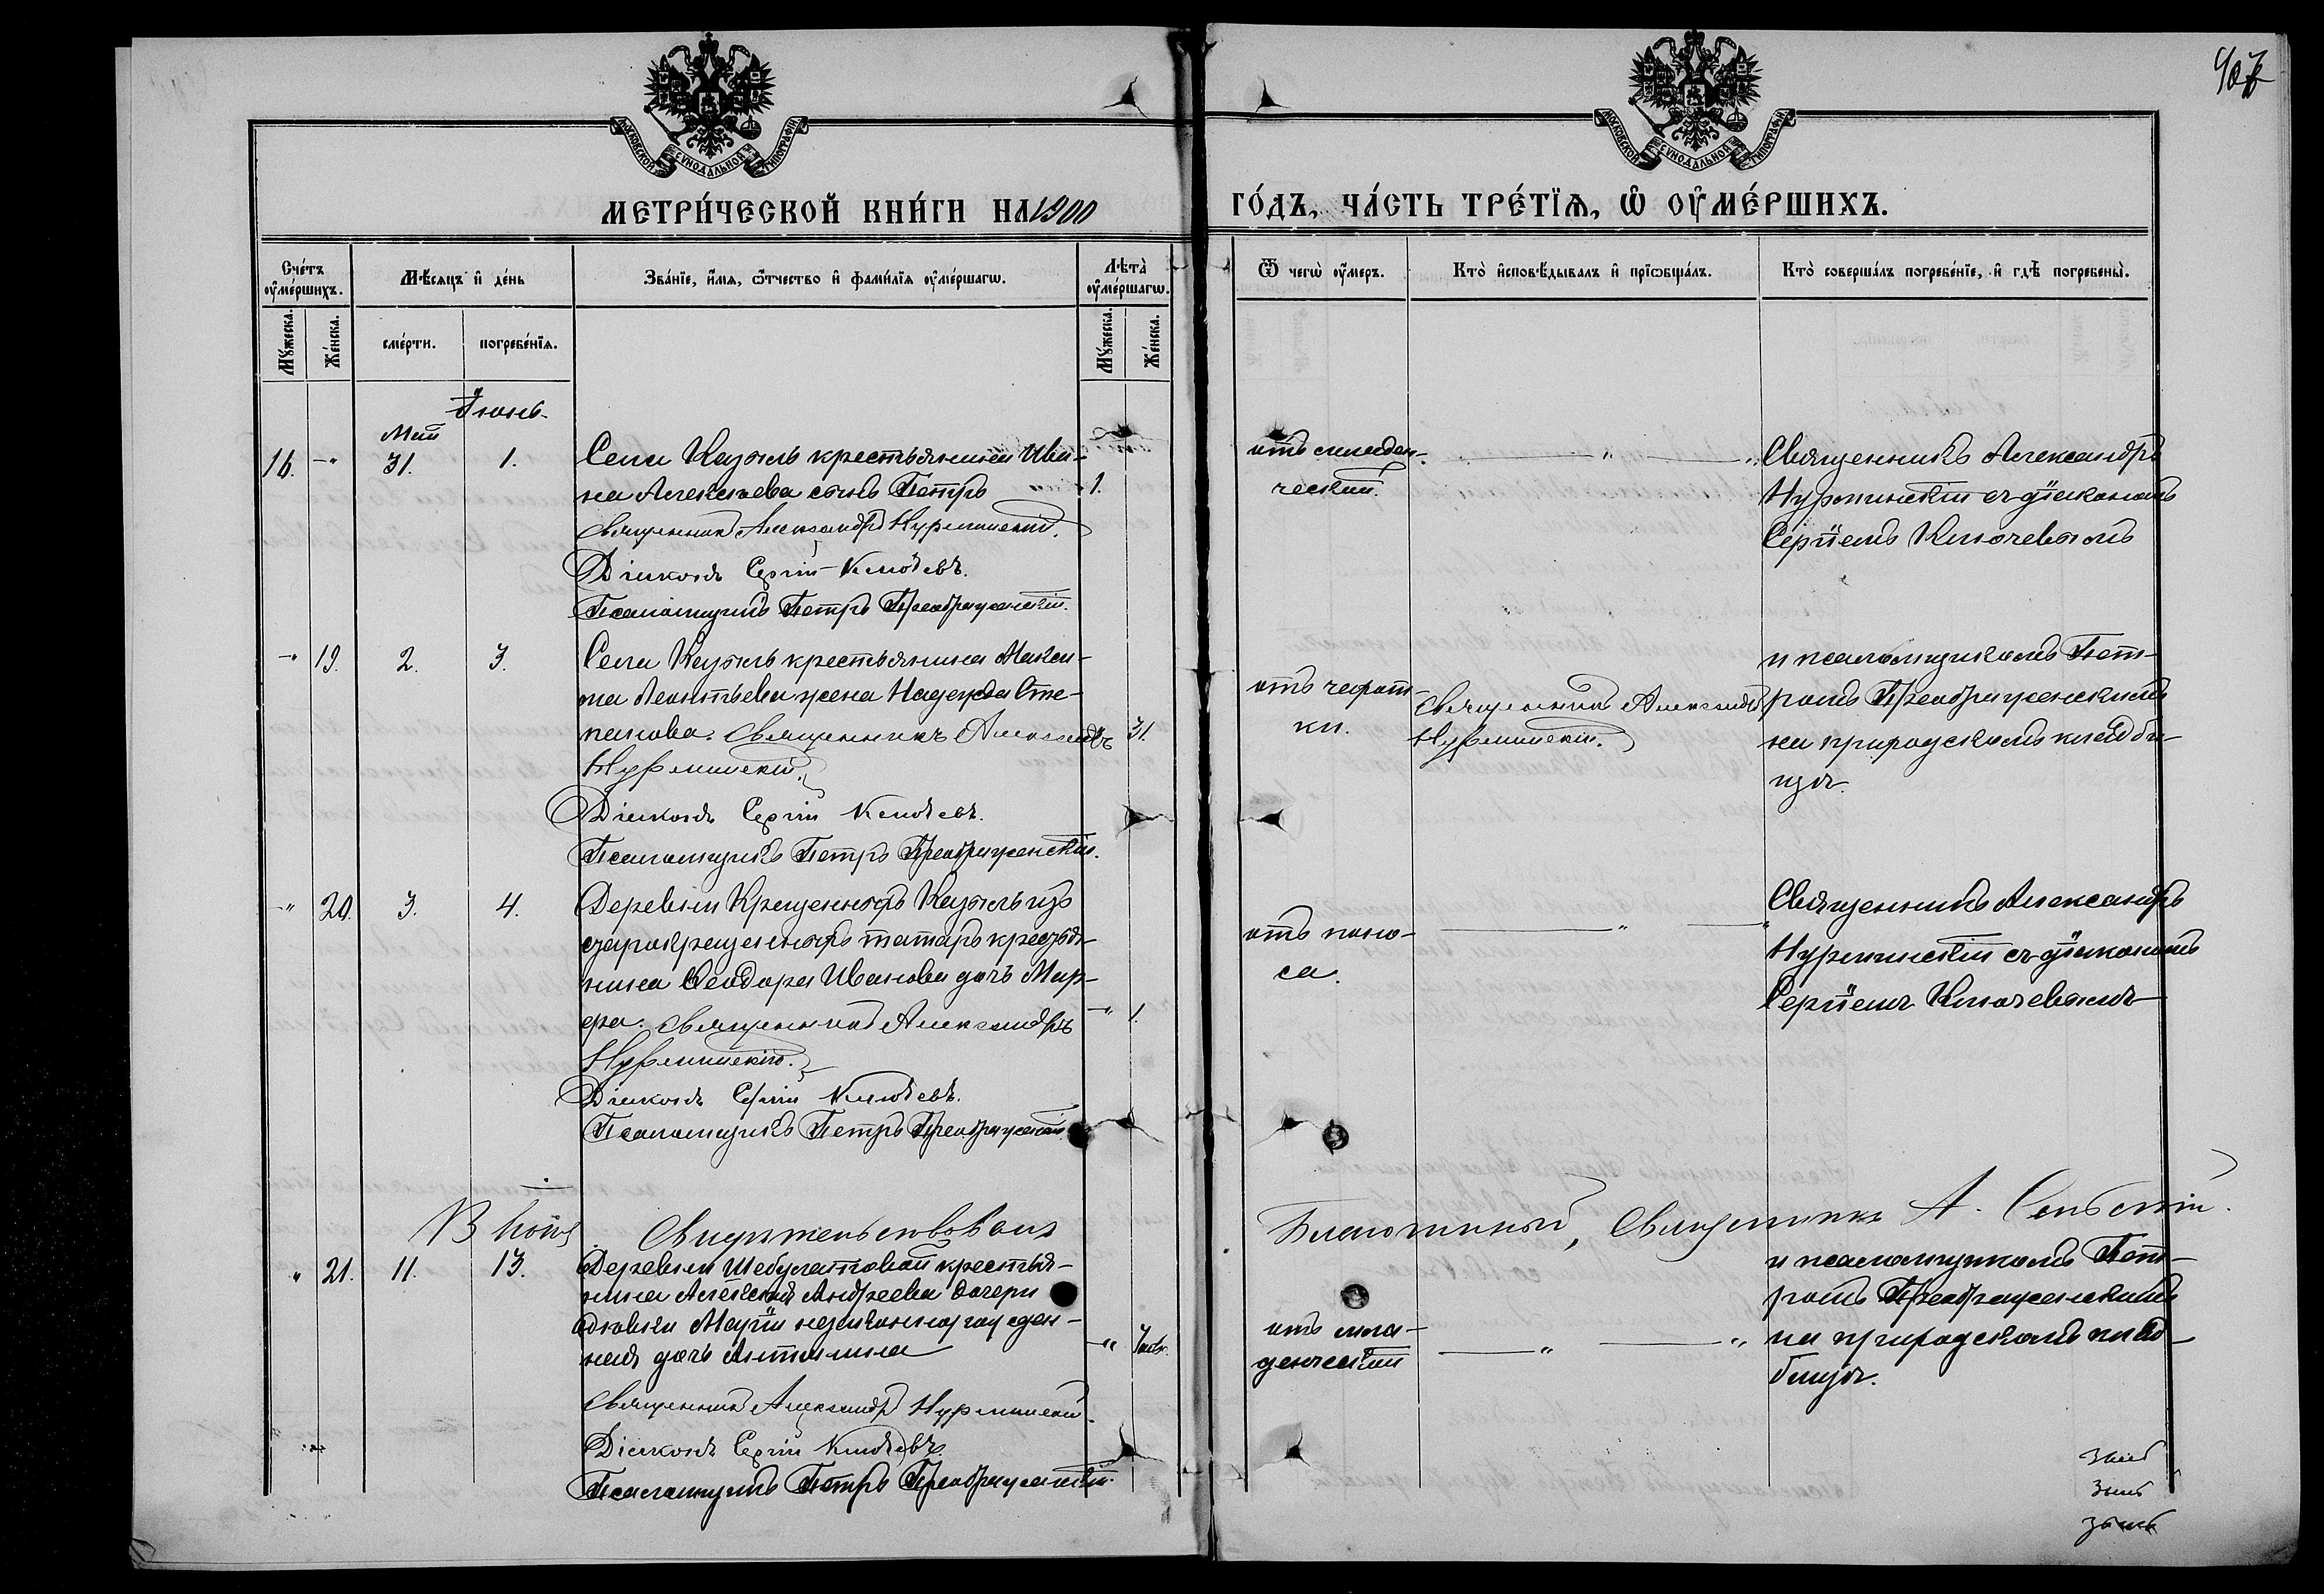 407
МОСКОВСКОЙ СѴНОДАЛЬНОЙ ТИПОГРАФІИ
МОСКОВСКОЙ СѴНОДАЛЬНОЙ ТИПОГРАФІИ
МЕТРИ́ЧЕСКОЙ КНИ́ГИ НА 1900
ГО́ДЪ, ЧА́СТЬ ТРЕ́ТЇѦ, Ѡ҆ ОУ҆МЕ́РШИХЪ.
Сче́тъ оу҆ме́ршихъ.
Мꙋ́жеска.
Же́нска.
Мѣ́сѧцъ и҆ де́нь
сме́рти.
погребе́нїѧ.
Зва́нїе, и҆́мѧ, ѻ҆́тчество и҆ фами́лїѧ оу҆ме́ршагѡ.
Лѣ́та оу҆ме́ршагѡ.
Мꙋ́жеска.
Же́нска.
Ѿ чегѡ̀ оу҆́меръ.
Кто̀ и҆сповѣ́дывалъ и҆ прїѡбща́лъ.
Кто̀ соверша́лъ погребе́нїе, и҆ гдѣ̀ погребены̀.
Іюнь.
Май
16. -" 31. 1.
Села крестьянина Ива-
на Алексѣева сынъ Петръ 1.
Священникъ Александръ Нурминскій.
Діаконъ Сергій Ключевъ.
Псаломщикъ Петръ Преображенскій.
отъ младен-
ческой.
"
Священникъ Александръ
Нурминскій съ діакономъ
Сергіемъ Ключевымъ
-" 19. 2. 3.
Села крестьянина Макси-
ма Леонтьева жена Надежда Сте-
панова. Священникъ Александръ 31.
Нурминскій.
Діаконъ Сергій Ключевъ.
Псаломщикъ Петръ Преображенскій.
отъ чахот-
ки.
Священникъ Александръ
Нурминскій.
и псаломщикомъ Пет-
ромъ Преображенскимъ
на приходскомъ кладби-
щѣ.
-" 20. 3. 4.
Деревни изъ
старокрещеныхъ татаръ крестья-
нина Ѳеодора Иванова дочь Мар-
ѳа. Священникъ Александръ -" 1.
Нурминскій.
Діаконъ Сергій Ключевъ.
Псаломщикъ Петръ Преображенскій.
отъ поно-
са.
"
Священникъ Александръ
Нурминскій съ діакономъ
Сергіемъ Ключевымъ
Свидѣтельствовалъ Благочинный, Священникъ А.
" 21. 11. 13.
Деревни крестья-
нина Алексѣя Андреева дочери
Маріи незаконнорожден-
ная дочь -"
Священникъ Александръ Нурминскій.
Діаконъ Сергій Ключевъ.
Псаломщикъ Петръ Преображенскій.
отъ мла-
денческой
"
и псаломщикомъ Пет-
ромъ Преображенскимъ
на приходскомъ клад-
бищѣ.